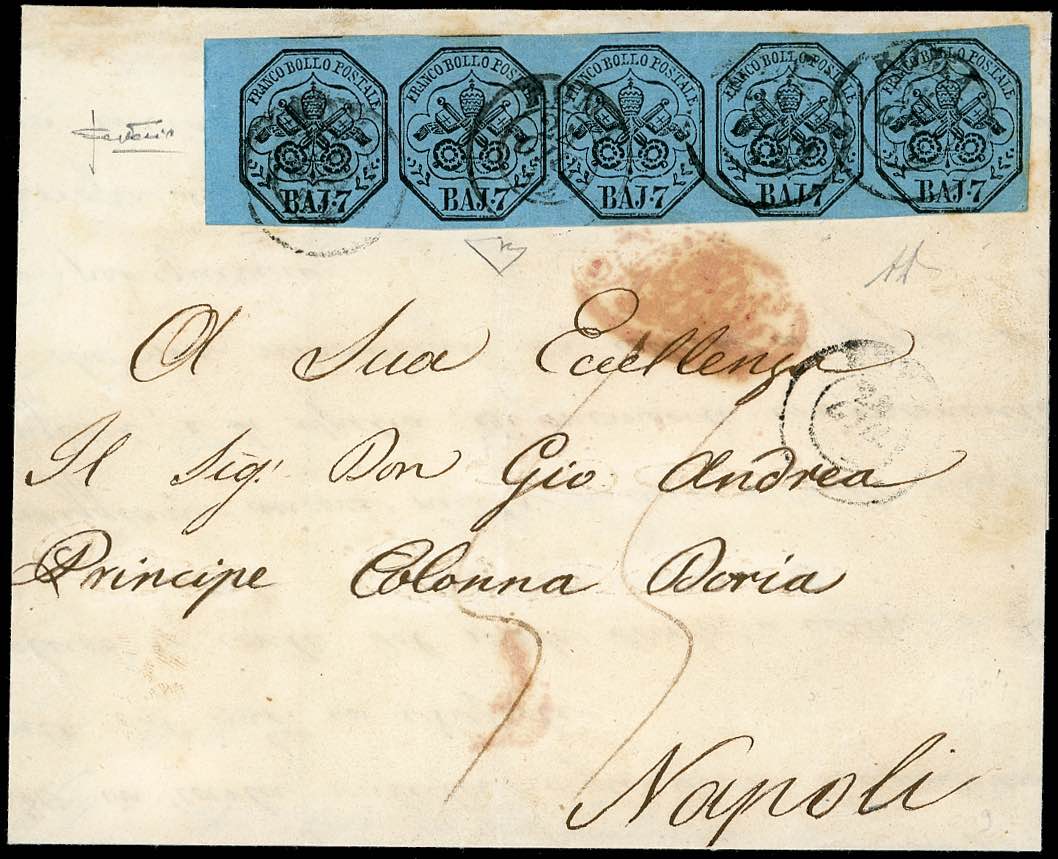 FRANCO BOLLO POSTALE FRANCO BOLLO POSTALE FRANCO BOLLO POSTALE FRANCO BOLLO POSTALE FRANCO BOLLO POSTALE
BAJ·7 BAJ·7 BAJ·7 BAJ·7 BAJ·7
A Sua Eccellenza
Il Sig.r Don Gio Andrea
Principe Colonna Doria
Napoli